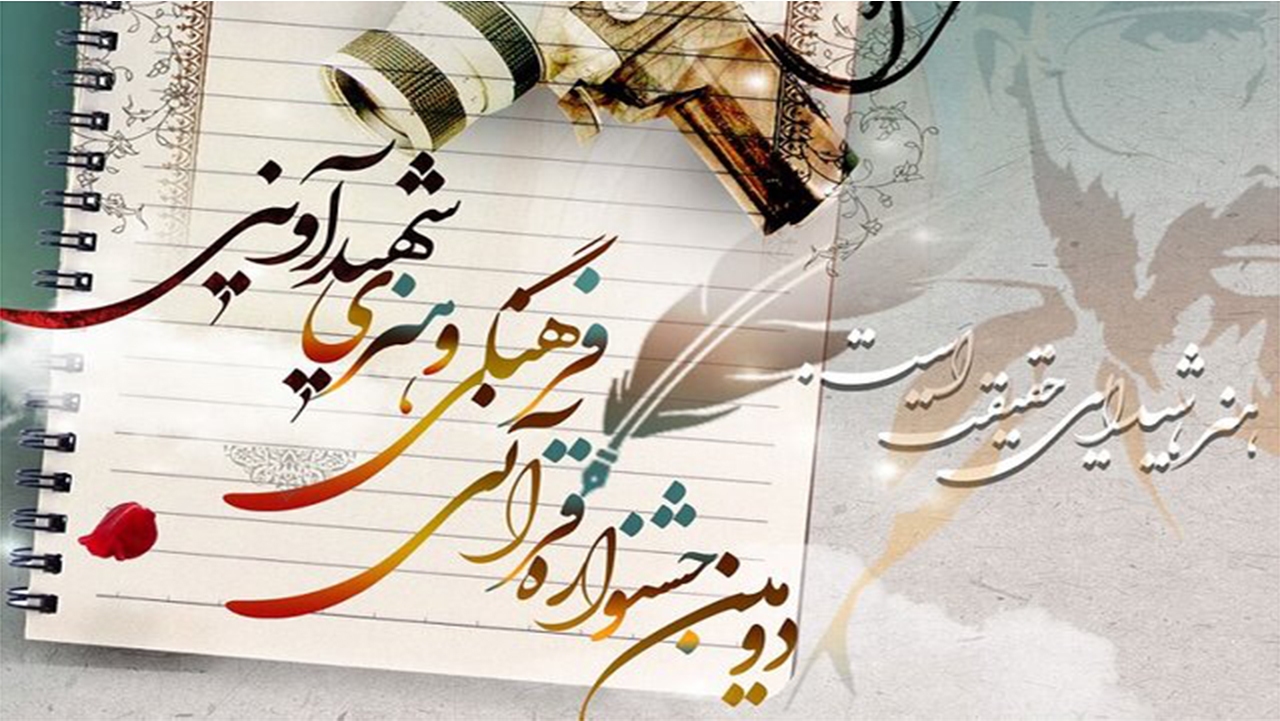 دومین جشنواره قرآنی
فرهنگی و هنری
شهید آوینی
هنر شیدای حقیقت است.